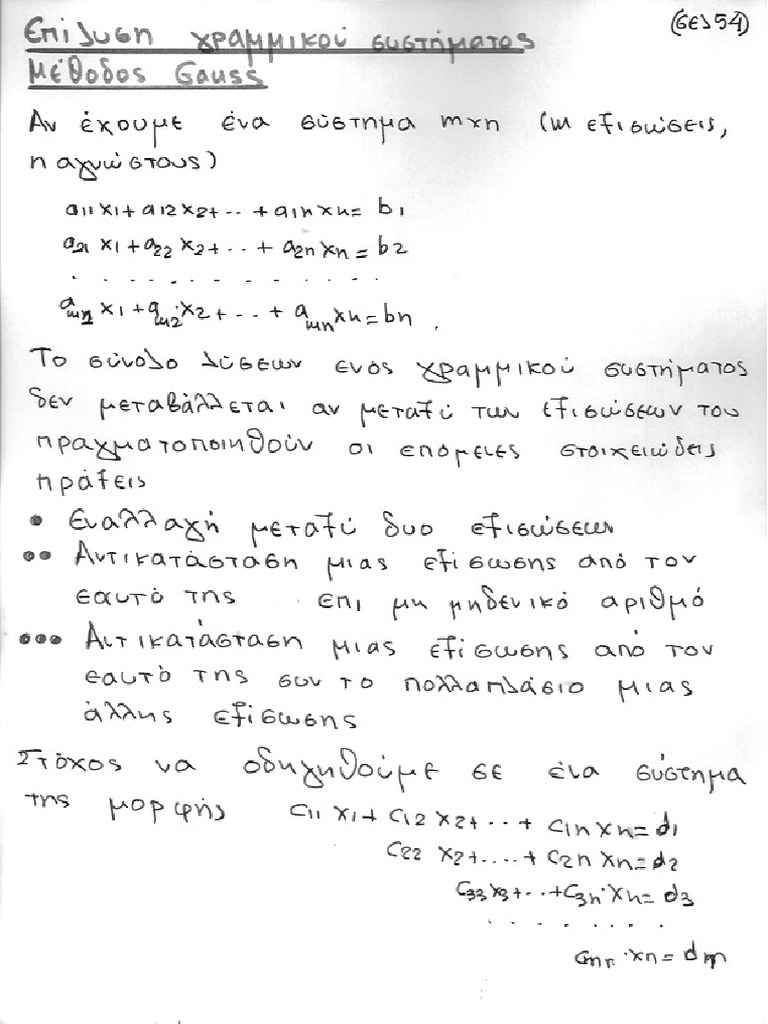 Επίλυση γραμμικού συστήματος (σελ 54)
Μέθοδος Gauss
Αν έχουμε ένα σύστημα mxn (m εξισώσεις,
n αγνώστους)
a11 x1 + a12 x2 + .. + a1n xn = b1
a21 x1 + a22 x2 + .. + a2n xn = b2
. . . . . . . . . . . . .
am1 x1 + am2 x2 + .. + amn xn = bn .
Το σύνολο λύσεων ενός γραμμικού συστήματος
δεν μεταβάλλεται αν μεταξύ των εξισώσεων του
πραγματοποιηθούν οι επόμενες στοιχειώδεις
πράξεις
• Εναλλαγή μεταξύ δυο εξισώσεων
•• Αντικατάσταση μιας εξίσωσης από τον
εαυτό της επι μη μηδενικό αριθμό
••• Αντικατάσταση μιας εξίσωσης από τον
εαυτό της συν το πολλαπλάσιο μιας
άλλης εξίσωσης
Στόχος να οδηγηθούμε σε ένα σύστημα
της μορφής c11 x1 + c12 x2 + .. + c1n xn = d1
c22 x2 + .... + c2n xn = d2
c33 x3 + .. + c3n · xn = d3
. . . . . . . .
cmn · xn = dm